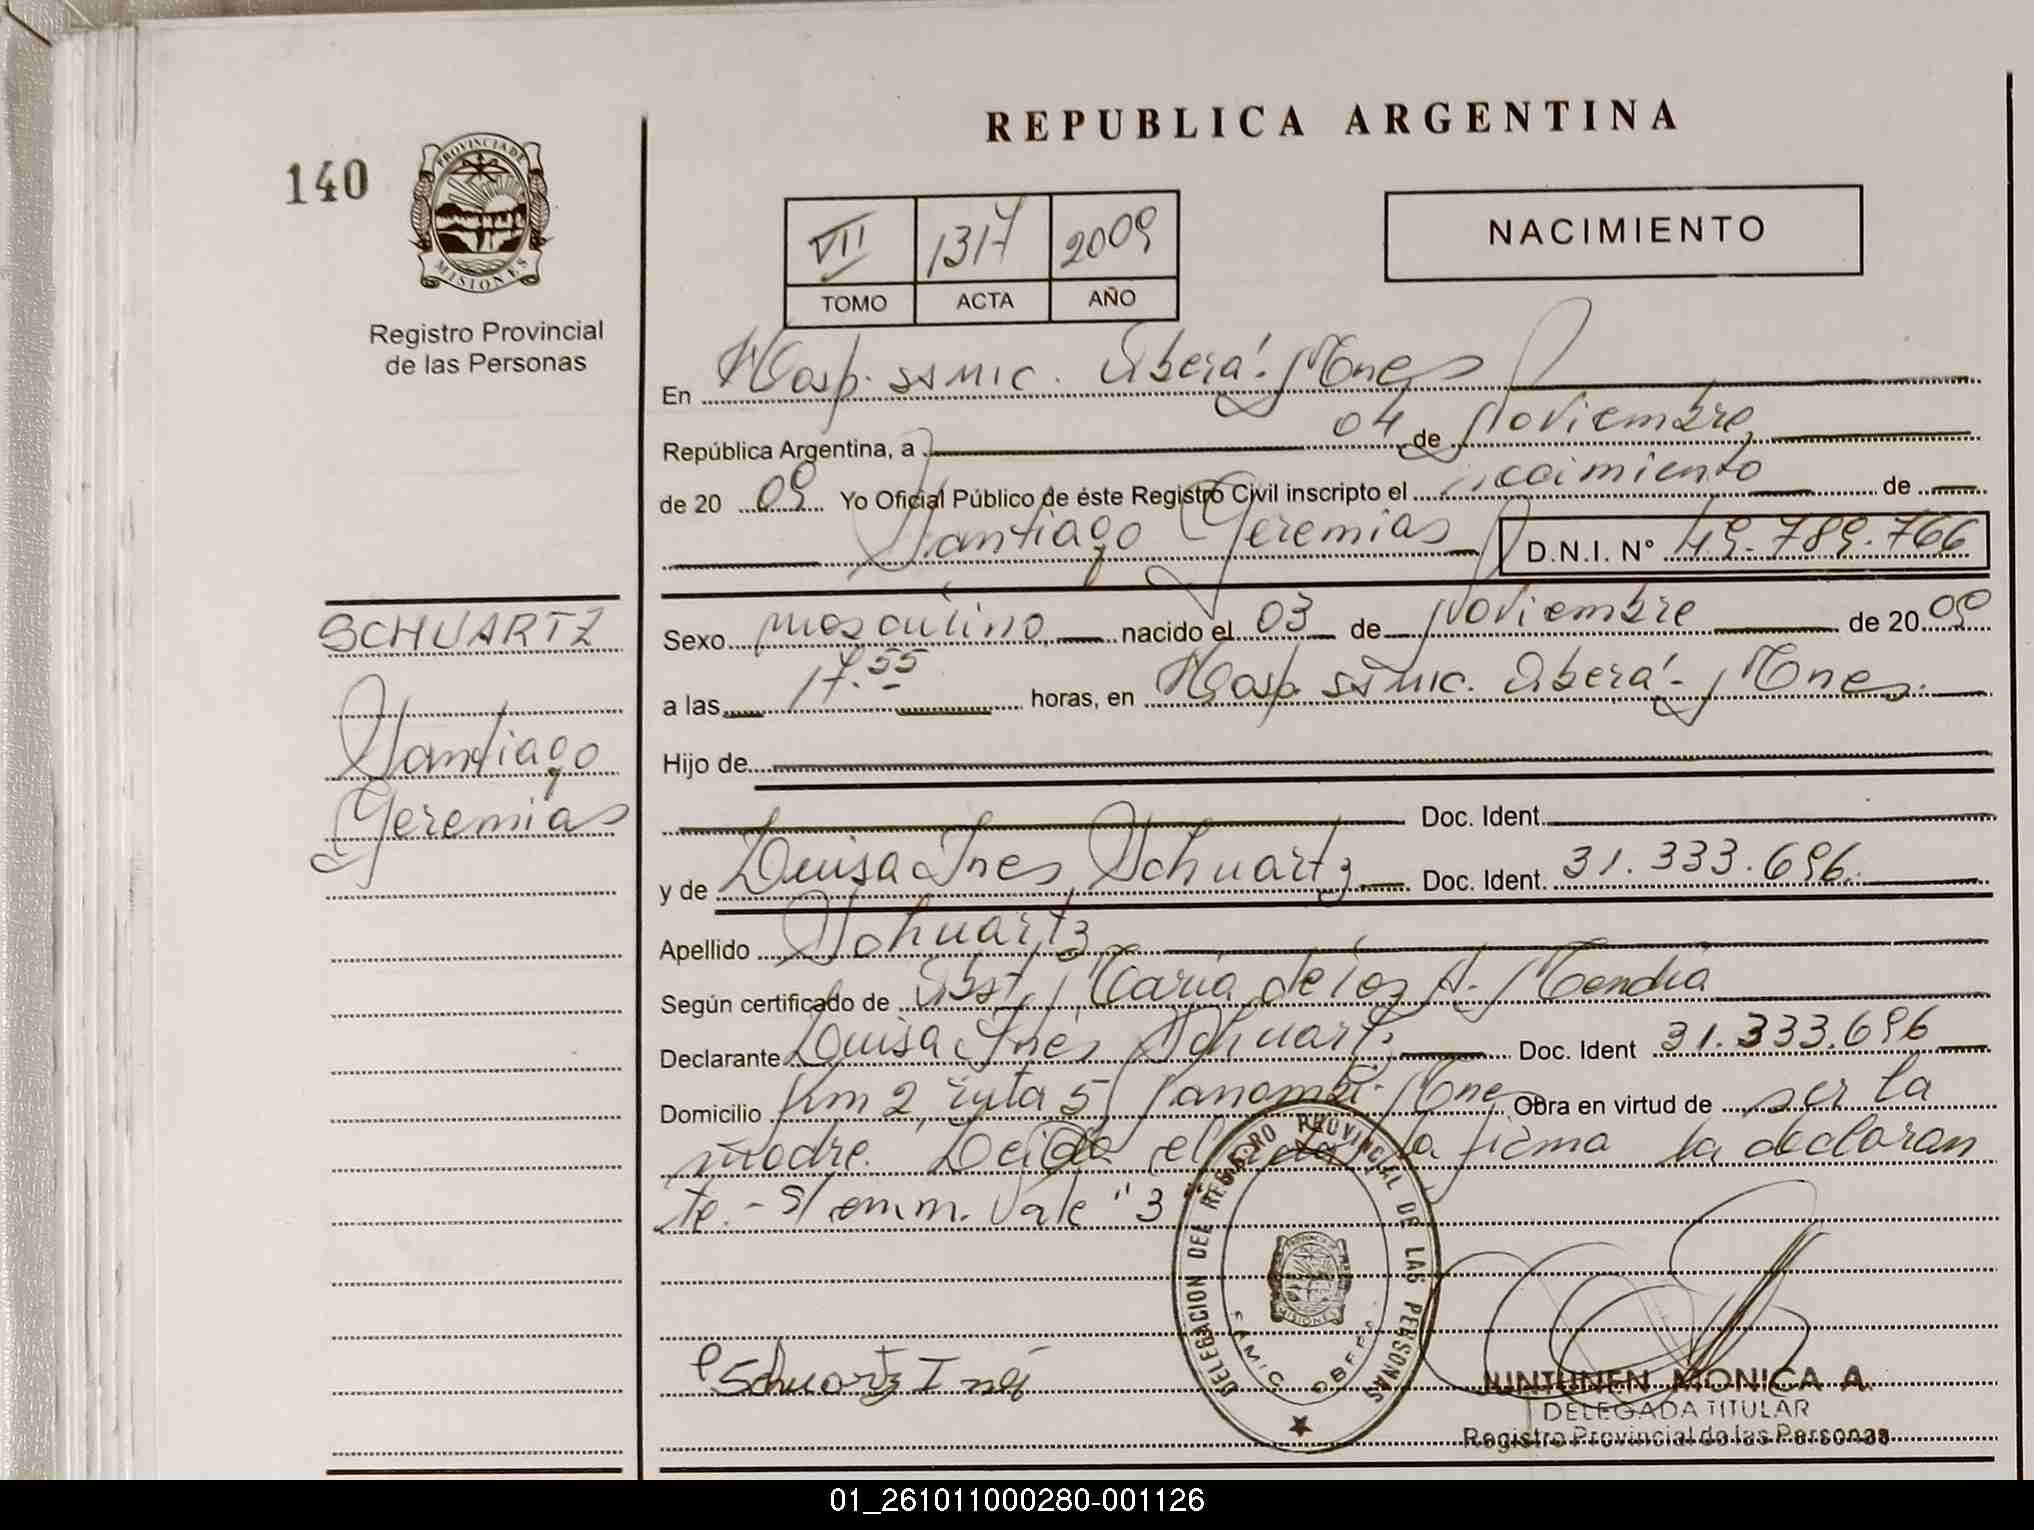 REPUBLICA ARGENTINA
140
PROVINCIA DE
MISIONES
Registro Provincial
de las Personas
VII 1317 2009
TOMO ACTA AÑO
NACIMIENTO
En Hosp. SAMIC. Oberá. Mnes
República Argentina, a 04 de Noviembre
de 20 09 Yo Oficial Público de éste Registro Civil inscripto el nacimiento de
Santiago Geremias D.N.I. Nº 49.789.766
SCHUARTZ
Santiago
Geremias
Sexo masculino nacido el 03 de Noviembre de 20 09
a las 17.55 horas, en Hosp. SAMIC. Oberá - Mnes.
Hijo de
Doc. Ident.
y de Luisa Ines Schuartz Doc. Ident. 31.333.696.
Apellido Schuartz
Según certificado de Obst. Maria de los A. Mendia
Declarante Luisa Inés Schuartz Doc. Ident 31.333.696
Domicilio Km 2 ruta 5 Panambi - Mnes Obra en virtud de ser la
madre. Leida el acta la firma la declaran
te. - S/ emm. Vale "3
DELEGACION DEL REGISTRO PROVINCIAL DE LAS PERSONAS
PROVINCIA DE
MISIONES
SAMIC OBERA
Schuartz Inés
JUNTUNEN MONICA A.
DELEGADA TITULAR
Registro Provincial de las Personas
01_261011000280-001126